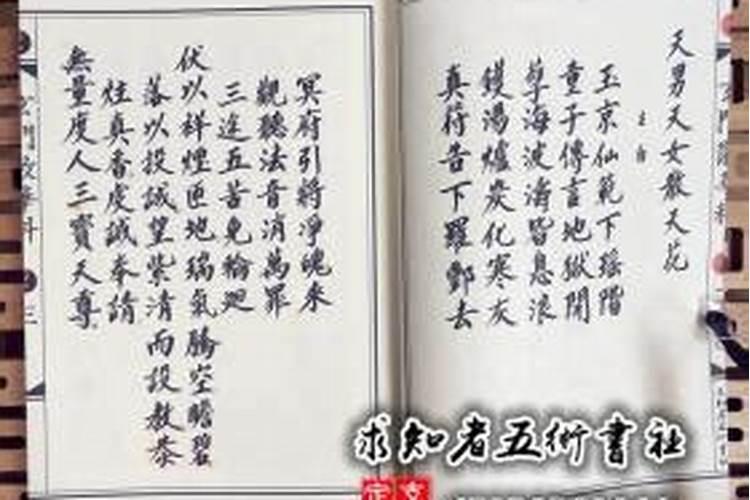 天男天女散天花
玉京仙範下瑶階
童子傳言地獄開
孽海波濤皆息浪
鑊湯爐炭化寒灰
真符告下羅酆去
冥府引將凈魄来
觀聽法音消萬罪
三途五苦免輪迴
伏以祥煙匝地瑞氣騰空瞻碧
落以投誠望紫清而設教恭
炷真香虔誠奉請
無量度人三寶天尊
三
求知者五術書社